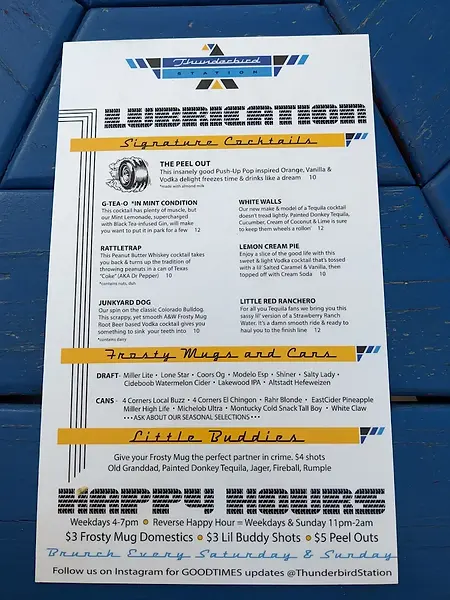 Thunderbird
STATION
LUBRICATION
Signature Cocktails
THE PEEL OUT
This insanely good Push-Up Pop inspired Orange, Vanilla &
Vodka delight freezes time & drinks like a dream 10
*made with almond milk
G-TEA-O *IN MINT CONDITION
This cocktail has plenty of muscle, but
our Mint Lemonade, supercharged
with Black Tea-infused Gin, will make
you want to put it in park for a few 12
WHITE WALLS
Our new make & model of a Tequila cocktail
doesn't tread lightly. Painted Donkey Tequila,
Cucumber, Cream of Coconut & Lime is sure
to keep them wheels a rollon' 12
RATTLETRAP
This Peanut Butter Whiskey cocktail takes
you back & turns up the tradition of
throwing peanuts in a can of Texas
"Coke" (AKA Dr Pepper) 10
*contains nuts, duh
LEMON CREAM PIE
Enjoy a slice of the good life with this
sweet & light Vodka cocktail that's tossed
with a lil' Salted Caramel & Vanilla, then
topped off with Cream Soda 10
JUNKYARD DOG
Our spin on the classic Colorado Bulldog.
This scrappy, yet smooth A&W Frosty Mug
Root Beer based Vodka cocktail gives you
something to sink your teeth into 10
*contains dairy
LITTLE RED RANCHERO
For all you Tequila fans we bring you this
sassy lil' version of a Strawberry Ranch
Water. It's a damn smooth ride & ready to
haul you to the finish line 12
Frosty Mugs and Cans
DRAFT- Miller Lite • Lone Star • Coors Og • Modelo Esp • Shiner • Salty Lady •
Cideboob Watermelon Cider • Lakewood IPA • Altstadt Hefeweizen
CANS - 4 Corners Local Buzz • 4 Corners El Chingon • Rahr Blonde • EastCider Pineapple
Miller High Life • Michelob Ultra • Montucky Cold Snack Tall Boy • White Claw
•••ASK ABOUT OUR SEASONAL SELECTIONS•••
Little Buddies
Give your Frosty Mug the perfect partner in crime. $4 shots
Old Granddad, Painted Donkey Tequila, Jager, Fireball, Rumple
HAPPY HOURS
Weekdays 4-7pm • Reverse Happy Hour = Weekdays & Sunday 11pm-2am
$3 Frosty Mug Domestics • $3 Lil Buddy Shots • $5 Peel Outs
Brunch Every Saturday & Sunday
Follow us on Instagram for GOODTIMES updates @ThunderbirdStation